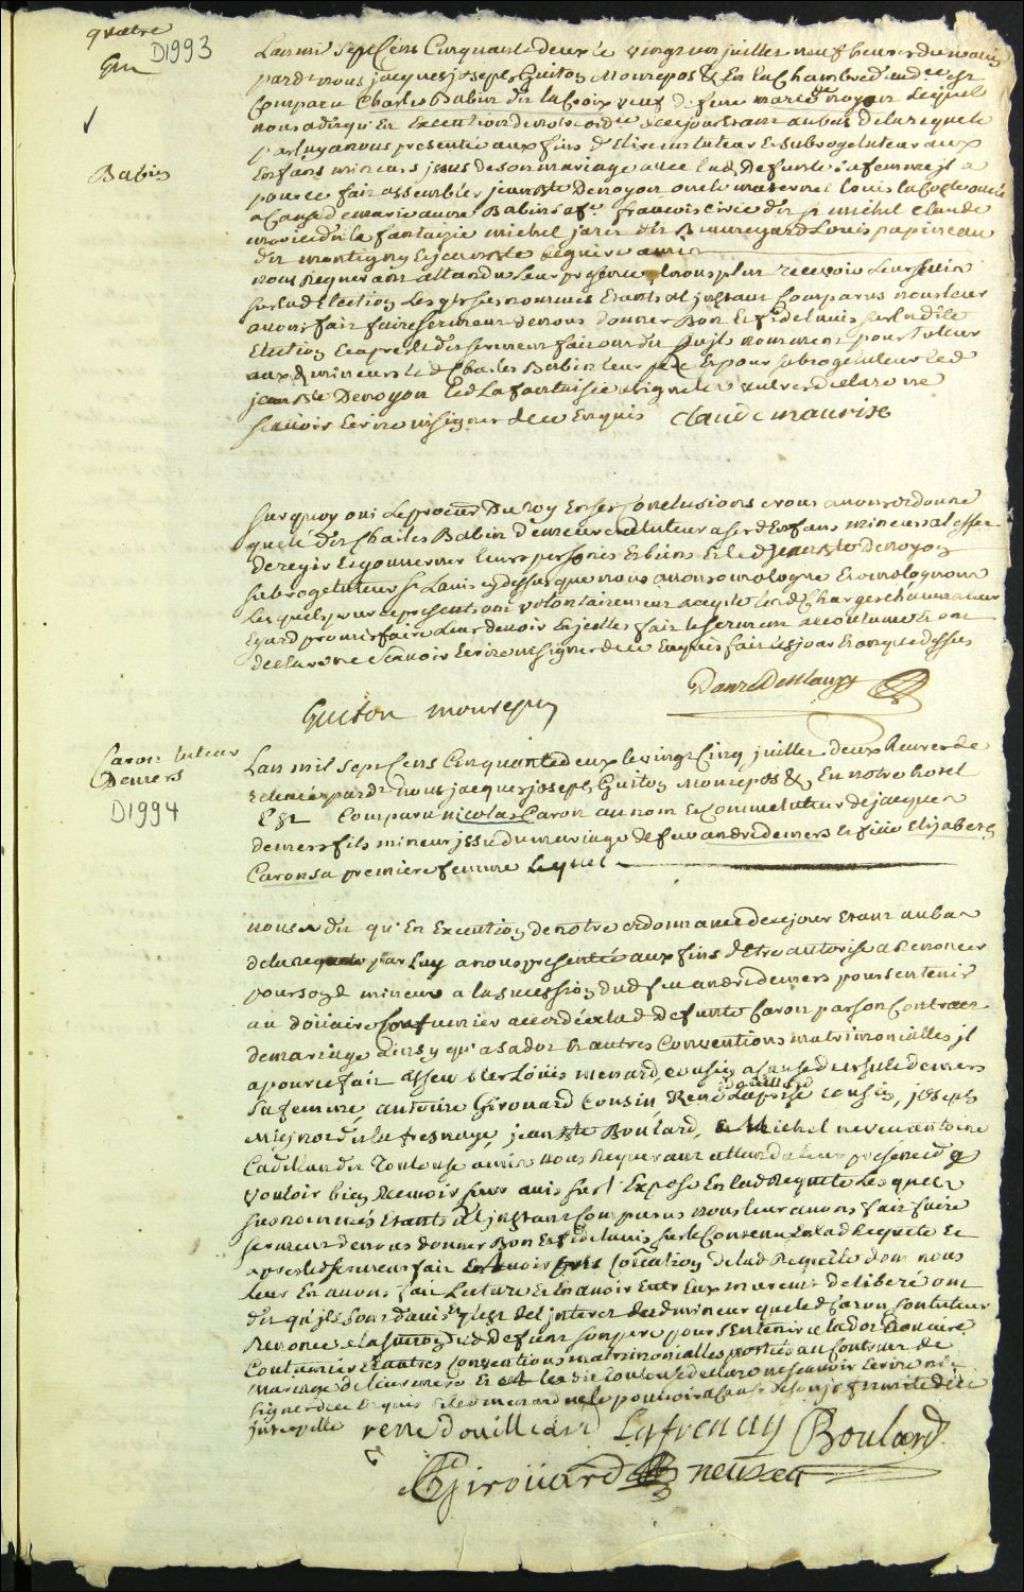 quatre
Gm
D1993
Babin
Lan mil Sept Cens Cinquante deux le vingt un juillet neuf heures du matin
pardt nous jacques joseph Guiton Monrepos &a En la Chambre d'audce Est
Comparu Charles Babin dit la Croix veuf de feue marie noyon Lequel
nous a dit qu'En Execution de notre ordce de ce jour Etant au bas de la requete
par luy a nous presentée aux fins d'Elire un tuteur Et subrogé tuteur aux
Enfans mineurs issus de son mariage avec lad. defunte sa femme jl a
pour ce fait assembler jean Bte Denoyon oncle maternel Louis la Coste oncle
a Cause de marie anne Babin sa fe. francois Civée dit st michel Claude
morice dit la fantaizie michel jaret dit Beauregard Louis papineau
dit montigny Et jean Bte seguin amis
nous Requerant attandu Leur presence quil nous plut recevoir Leur avis
sur lad Election Lesqls susnommés Etants al instant Comparus nous leur
avons fait faire serment de nous donner Bon Et fidel avis sur ladite
Election Et aprés led serment fait ont dit quils nomment pour Tuteur
aux d. mineurs le d Charles Babin leur pere Et pour subrogé tuteur led
jean Bte Denoyon Led La fantaisie a signé les autres declaré ne
scavoir Ecrire ni signer de ce Enquis Claude maurise
Sur quoy oui Le procur Du Roy En ses Conclusions nous avons ordonné
que le dit Charles Babin Demeurera tuteur a sesd Enfans mineurs al effet
de regir Et gouverner leurs personnes Et biens Et led jean Bte Denoyon
subrogé tuteur sr Lavis cy dessus que nous avons omologué Et omologuons
Lesquels pour ce presents ont volontairement accepté lesd Charges chacun a leur
Egard promis faire Leur devoir En jcelles fait le serment accoutumé Et ont
declaré ne Scavoir Ecrire ni signer de ce Enquis fait les jour Et an que dessus
Danré De Blanzy
Guiton monrepos
Caron tuteur
Demers
D1994
Lan mil sept Cens Cinquante deux le vingt Cinq juillet deux heures de
relevée pardt nous jacques joseph Guiton Monrépos &a En notre hotel
Est Comparu nicolas Caron au nom Et Comme tuteur de jacques
demers fils mineur jssu du mariage de feu andré demers Et feüe Elizabeth
Caron sa premiere femme Lequel
nous a dit qu'En Execution de notre ordonnance de ce jour Etant au bas
de la Requete par Luy a nous presentée aux fins d'Etre autorisé a Renoncer
pour son d mineur a la sucession dud feu andré demers pour s'en tenir
au doüaire Coutumier accordé a lad defunte Caron par son Contract
de mariage ainsy qu'a sa dot Et autres Conventions matrimonialles jl
a pour ce fait assembler Loüis menard, cousin a cause d ursule demers
sa femme, antoine Girouard Cousin, René douillard Laprise cousin, joseph
Mignot dit la fresnaye, jean Bte Boulard, & Michel neveu antoine
Cadillan dit Toulouse amis nous Requerant attandu leur presence de
vouloir bien Recevoir leur avis sur l'Exposé En lad Requete Lesquels
susnommés Etants al jnstant Comparus nous leur avons fait faire
serment de nous donner Bon Et fidel avis sur le Contenu En lad Requete Et
apres led serment fait Et avoir pris Coication de lad Requete dont nous
leur En avons fait Lecture Et En avoir Entr Eux murement deliberé ont
dit qu'jls sont d'avis qu'jl Est del jnteret dud mineur que led Caron son tuteur
Renonce a la succon dud defunt son pere pour s'En tenir a la dot Doüaire
Coutumier Et autres Conventions matrimonialles portées au Contract de
mariage de leur mere Et Led dit toulouse declaré ne scavoir Ecrire ni
signer de ce Enquis Et led menard ne le pouvoir a Cause de son jnfirmité de ce
jnterpellé rene douillard Lafrenay Boulard
A Girouard M neveu